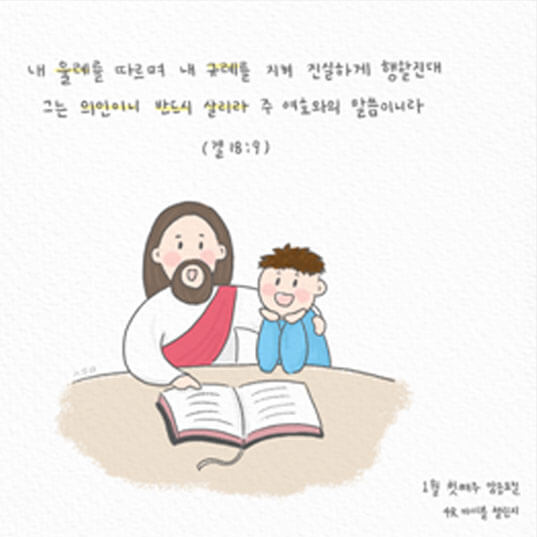 내 율례를 따르며 내 규례를 지켜 진실하게 행할진대
그는 의인이니 반드시 살리라 주 여호와의 말씀이니라
(겔 18:9)
1월 첫째주 암송요절
4R 바이블 챌린지